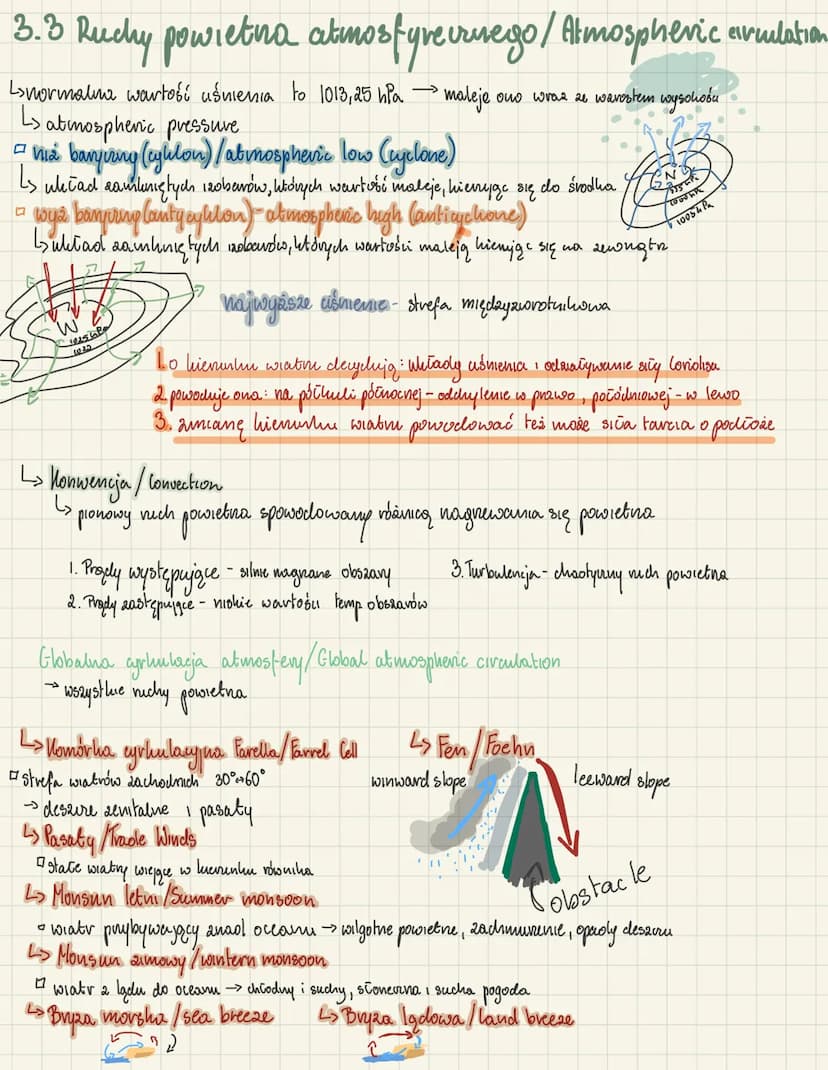 3.3 Ruchy powietrza atmosfyrycznego / Atmospheric circulation
↳ normalna wartość ciśnienia to 1013,25 hPa → maleje ono wraz ze wzrostem wysokości
↳ atmospheric pressure
▫ niż baryczny (cyklon) / atmospheric low (cyclone)
↳ układ zamkniętych izobarów, których wartość maleje, kierując się do środka
N
995 hPa
1000 hPa
1005 hPa
▫ wyż baryczny (antycyklon) - atmospheric high (anticyclone)
↳ układ zamkniętych izobarów, których wartości maleją kierując się na zewnątrz
W
1025 hPa
1020
najwyższe ciśnienie - strefa międzyzwrotnikowa
1. o kierunku wiatru decydują: układy ciśnienia i oddziaływanie siły Coriolisa
2. powoduje ona: na półkuli północnej - odchylenie w prawo, południowej - w lewo
3. zmianę kierunku wiatru powodować też może siła tarcia o podłoże
↳ Konwencja / Convection
↳ pionowy ruch powietrza spowodowany różnicą nagrzewania się powietrza
1. Prądy występujące - silnie nagrzane obszary
3. Turbulencja - chaotyczny ruch powietrza
2. Prądy zastępujące - niskie wartości temp obszarów
Globalna cyrkulacja atmosfery / Global atmospheric circulation
→ wszystkie ruchy powietrza
↳ Komórka cyrkulacyjna Farella / Farrel Cell
↳ Fen / Foehn
▫ strefa wiatrów zachodnich 30°↔60°
winward slope
leeward slope
→ deszcze zenitalne i pasaty
↳ Pasaty / Trade Winds
▫ stałe wiatry wiejące w kierunku równika
obstacle
↳ Monsun letni / Summer monsoon
▫ wiatr przybywający znad oceanu → wilgotne powietrze, zachmurzenie, opady deszczu
↳ Monsun zimowy / wintern monsoon
▫ wiatr z lądu do oceanu → chłodny i suchy, słoneczna i sucha pogoda
↳ Bryza morska / sea breeze
↳ Bryza lądowa / land breeze